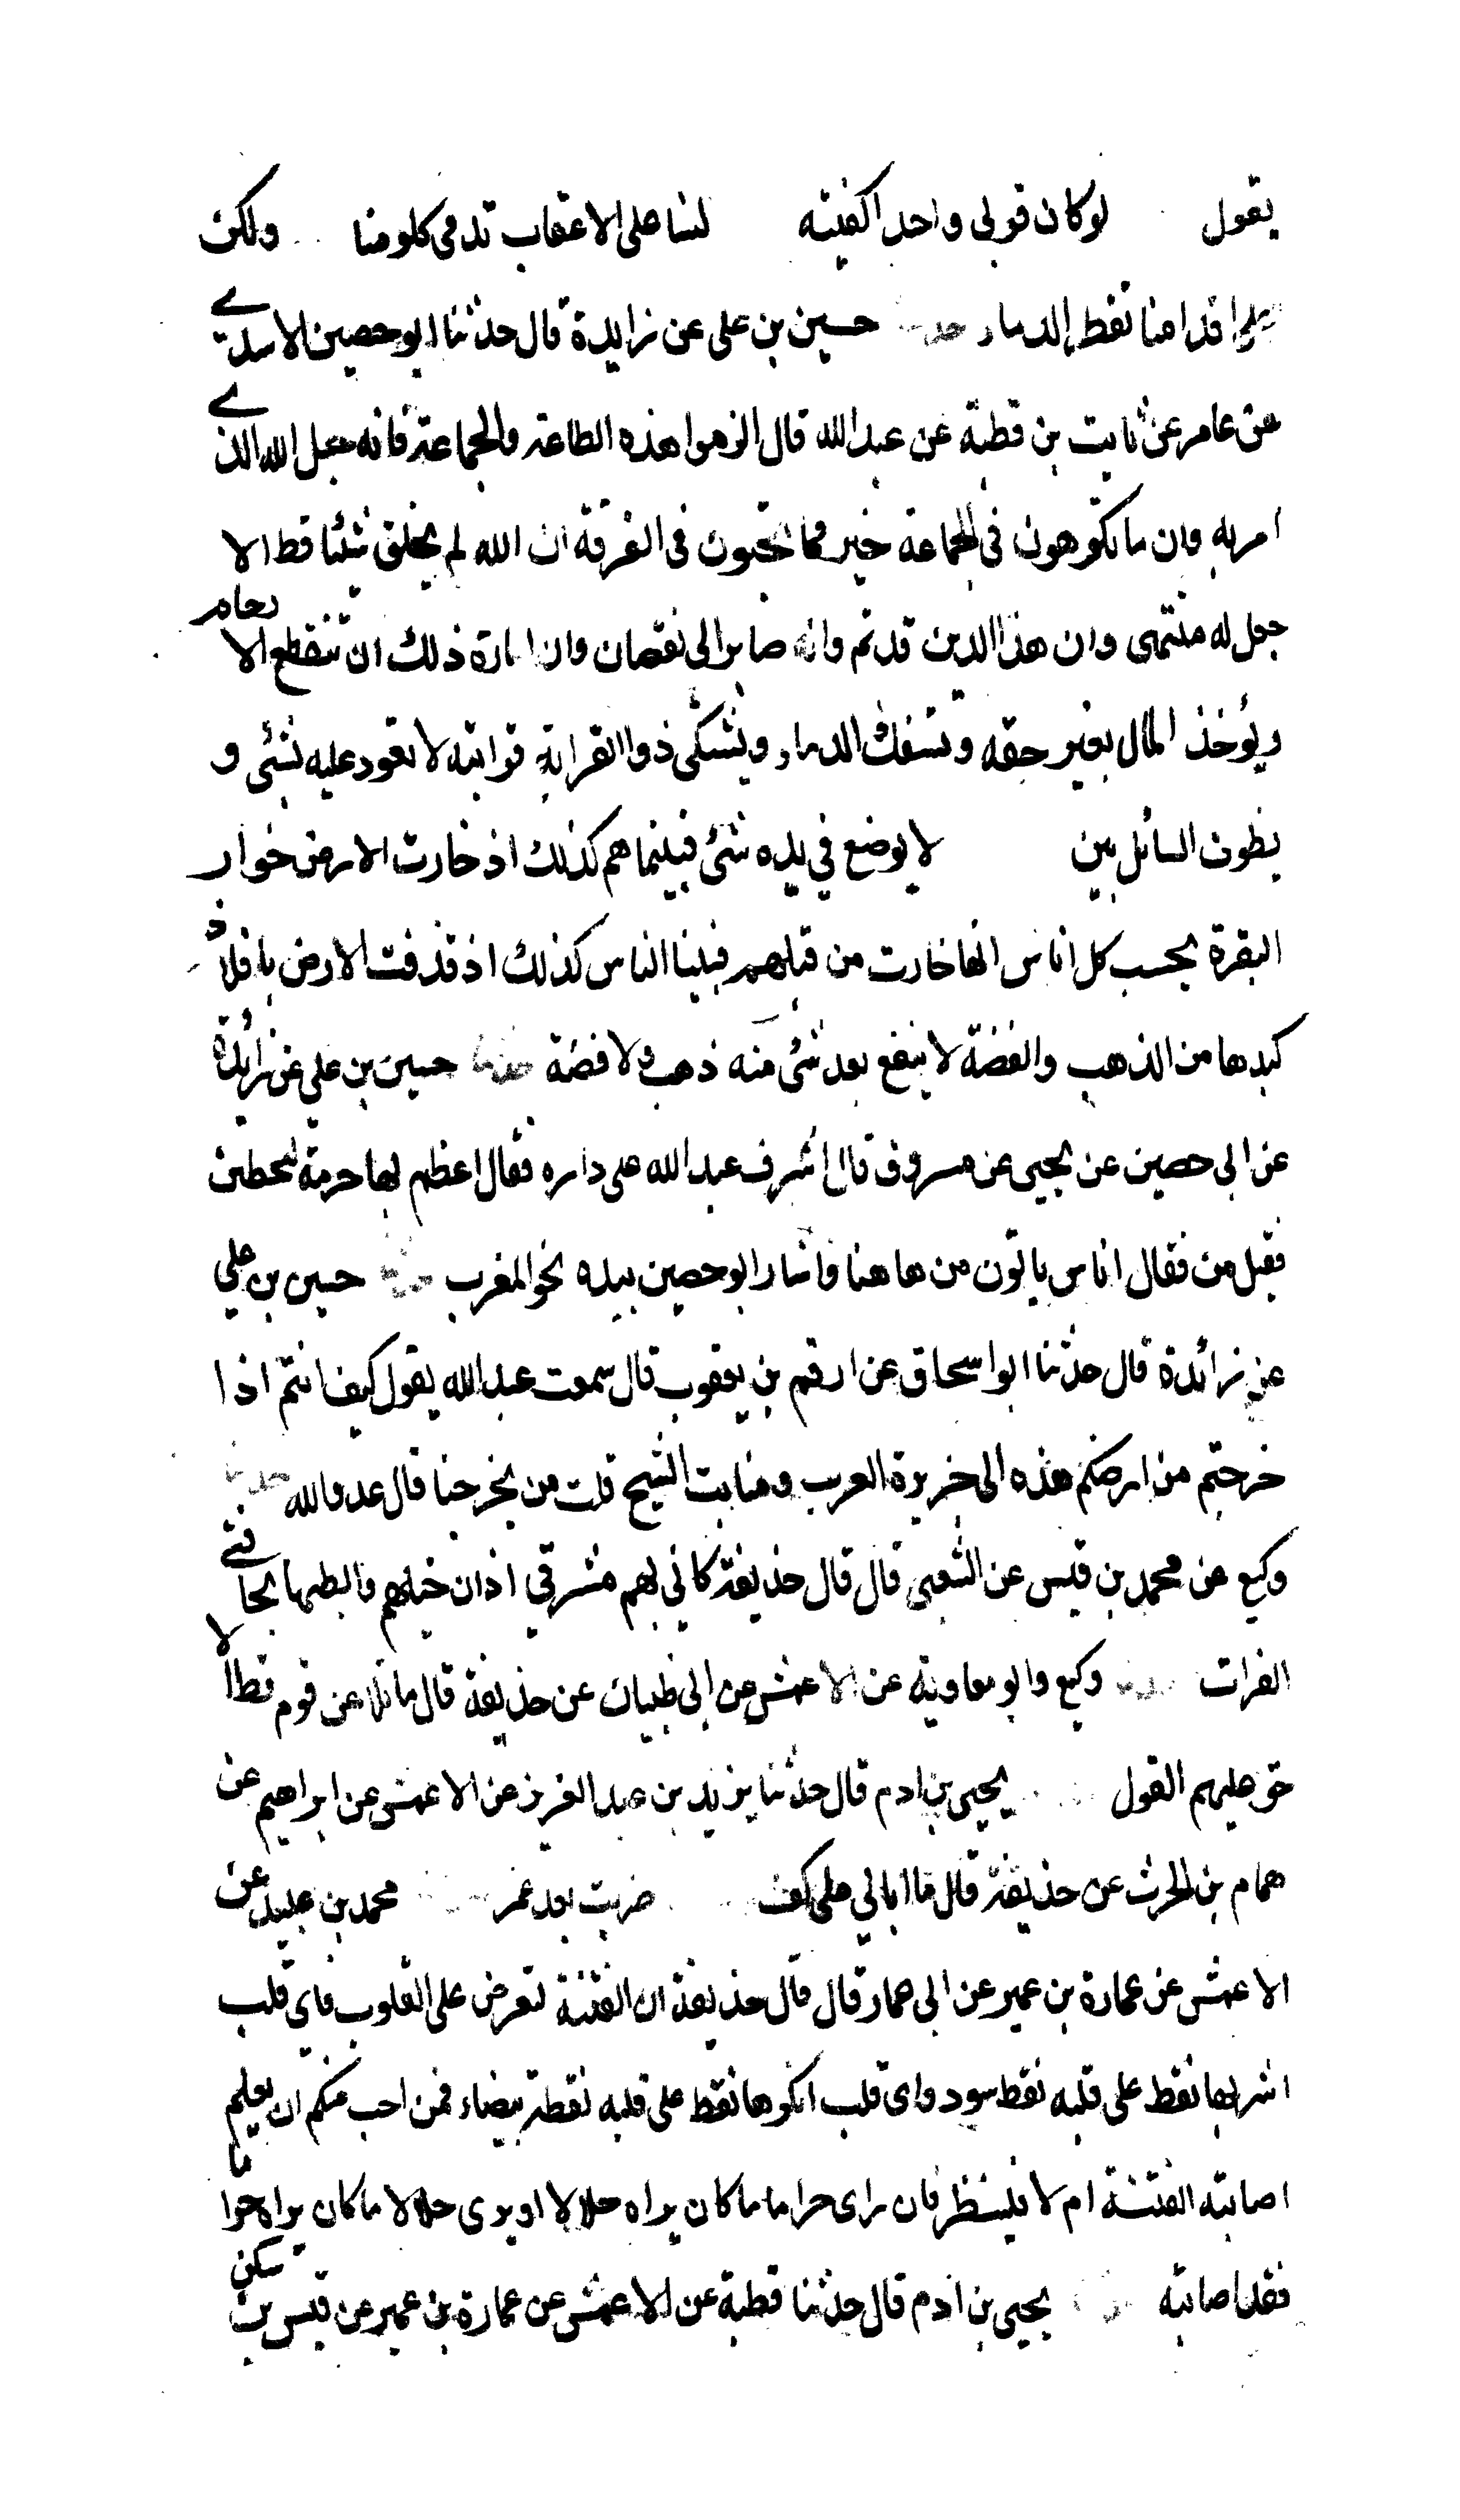 يقول لو كان قولي واحدا كفيته لسنا على الاعقاب تدمى كلومنا ولكن
على اقدامنا تقطر الدماء حدثنا حسين بن علي عن زايدة قال حدثنا ابو حصين الاسدي
عن عامر عن ثابت بن قطبة عن عبد الله قال الزموا هذه الطاعة والجماعة فانه حبل الله الذي
امر به وان ما تكرهون في الجماعة خير مما تحبون في الفرقة ان الله لم يخلق شيئا قط الا
جعل له منتهى وان هذا الدين قد تم وانه صائر الى نقصان وان امارة ذلك ان تنقطع الارحام
ويؤخذ المال بغير حقه وتسفك الدماء ويشتكى ذوا القرابة قرابته لا يعود عليه بشئ و
يطوف السائل بين لا يوضع في يده شئ فبينما هم كذلك اذ خارت الارض خوار
البقرة يحسب كل اناس انها خارت من قبلهم فبينا الناس كذلك اذ قذفت الارض بافلاذ
كبدها من الذهب والفضة لا ينفع بعد شئ منه ذهب ولا فضة حدثنا حسين بن علي عن زائدة
عن ابي حصين عن يحيى عن مسروق قال اشرف عبد الله على داره فقال اعظم بها حرمة ليحطن
فقيل من فقال اناس ياتون من ها هنا واشار ابو حصين بيده نحو المغرب حدثنا حسين بن علي
عن زائدة قال حدثنا ابو اسحاق عن ارقم بن يعقوب قال سمعت عبد الله يقول كيف انتم اذا
خرجتم من ارضكم هذه الى جزيرة العرب ومنابت الشيح قلت من يخرجنا قال عدو الله حدثنا
وكيع عن محمد بن قيس عن الشعبي قال قال حذيفة كاني بهم مشرفي اذان خيلهم رابطيها بحافتي
الفرات حدثنا وكيع وابو معاوية عن الاعمش عن ابي ظبيان عن حذيفة قال ما تلاعن قوم قط الا
حق عليهم القول يحيى بن ادم قال حدثنا يزيد بن عبد العزيز عن الاعمش عن ابراهيم عن
همام بن الحرث عن حذيفة قال ما ابالي على كف ضربت بعد عمر محمد بن عبيد عن
الاعمش عن عمارة بن عمير عن ابي عمار قال قال حذيفة ان الفتنة لتعرض على القلوب فاي قلب
اشربها نقط على قلبه نقط سود واي قلب انكرها نقط على قلبه نقطة بيضاء فمن احب منكم ان يعلم
اصابته الفتنة ام لا فلينظر فان راى حراما ما كان يراه حلالا او يرى حلالا ما كان يراه حراما
فقد اصابته يحيى بن ادم قال حدثنا قطبة عن الاعمش عن عمارة بن عمير عن قيس بن سكن